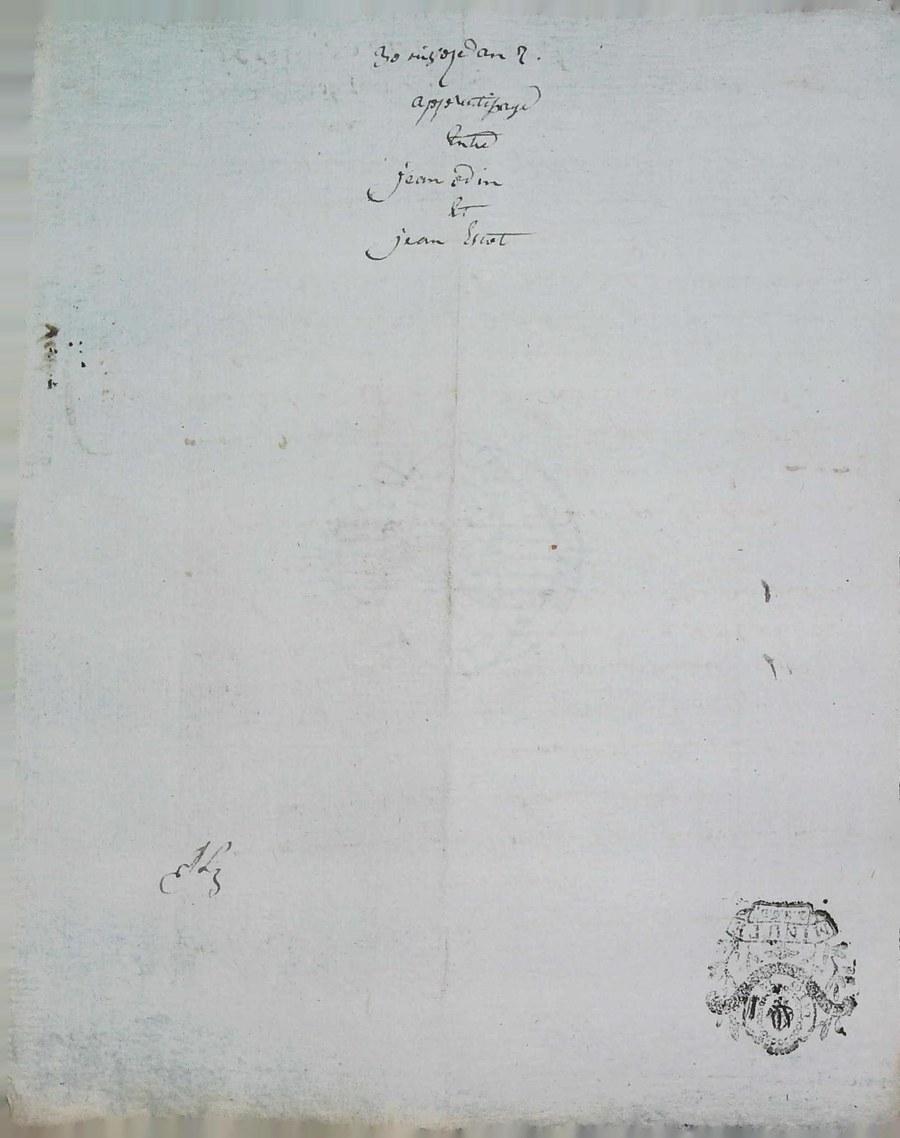 30 nivose an 7.
apprentissage
Entre
jean odin
Et
jean Escot
MINUTE